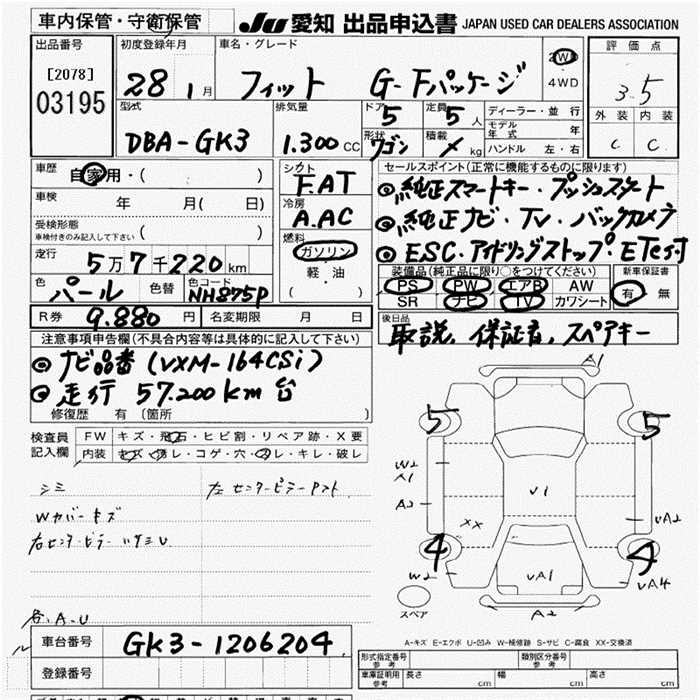 車内保管・守衛保管
JU 愛知 出品申込書 JAPAN USED CAR DEALERS ASSOCIATION
出品番号 初度登録年月 車名・グレード 評価点
[2078] 28 1月 フィット G-Fパッケージ 2WD 3.5
03195 4WD
外装 内装
型式 排気量 ドア 5 定員 5人 ディーラー・並行
モデル年式 年
DBA-GK3 1.300CC 形状 ワゴン 積載 kg ハンドル 左・右 C C
車歴 自家用・( ) シフト F.AT セールスポイント(正常に機能するものに限ります)
◎純正スマートキー・プッシュスタート
車検 年 月( 日) 冷房 A.AC ◎純正ナビ・TV・バックカメラ
受検形態 ( )
車検付きのみ記入して下さい
燃料 ガソリン ◎ESC・アイドリングストップ・ETC付
走行 5万7千220km 軽・油 ( )
装備品(純正品に限り○をつけてください) 新車保証書
色 パール 色替 色コード NH875P PS PW エアB AW 有・無
SR ナビ TV カワシート
R券 9.880円 名変期限 月 日 後日品 取説、保証書、スペアキー
注意事項申告欄(不具合内容等は具体的に記入して下さい)
◎ナビ品番(VXM-164CSi)
◎走行 57.200km台
修復歴 有 (箇所 )
検査員 FW キズ・飛石・ヒビ割・リペア跡・X要
記入欄 内装 キズ・汚レ・コゲ・穴・スレ・キレ・破レ
シミ
Wカバーキズ
A1
5 5
W2
X1
A2 V1
XX UA2
4 4
W2 UA1 UA4
A2
スペア
A-キズ E-エクボ U-凹み W-補修跡 S-サビ C-腐食 XX-交換済
車台番号 GK3-1206204
登録番号
形式指定番号 参考 類別区分番号 参考
車庫証明用 参考 長さ cm 幅 cm 高さ cm